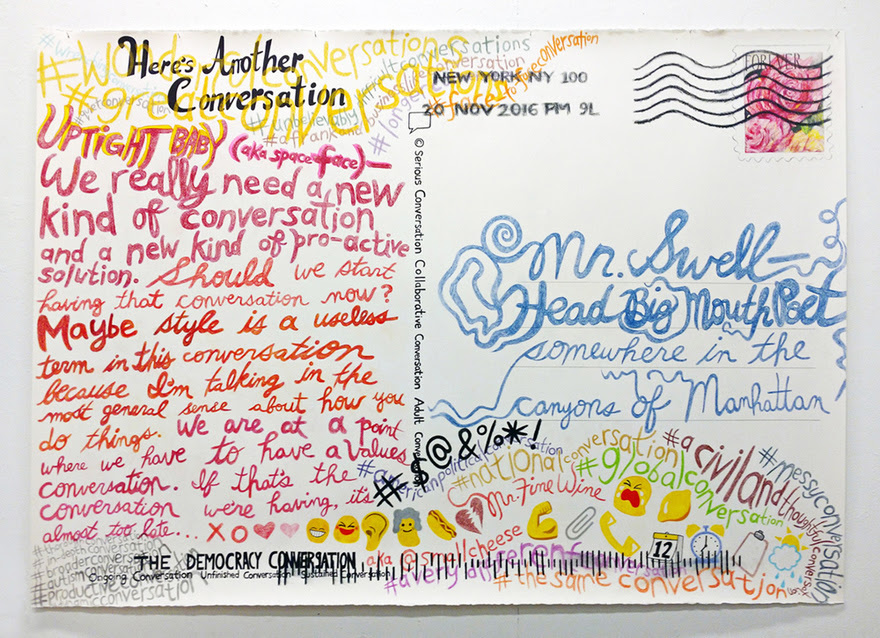 Here's Another
Conversation
#Wonderfulconversations
#greatconversations
UPTIGHT BABY (aka space-face)—
We really need a new
kind of conversation
and a new kind of pro-active
solution. Should we start
having that conversation now?
Maybe style is a useless
term in this conversation
because I'm talking in the
most general sense about how you
do things. We are at a point
where we have to have a values
conversation. If that's the
conversation we're having, it's
almost too late... XO
THE DEMOCRACY CONVERSATION
Ongoing Conversation Unfinished Conversation Sustained Conversation
© Serious Conversation Collaborative Conversation Adult Conversation
NEW YORK NY 100
20 NOV 2016 PM 9L
FOREVER
Mr. Swell—
Head Big Mouth Poet
somewhere in the
canyons of Manhattan
#$@&%*!
#americanpoliticalconversation
#nationalconversation
#globalconversation
#acivilandthoughtfulconversation
#messyconversation
Mr. Fine Wine
12
aka @smallcheese
#averydifferent
#the same conversation
#in-depthconversation
#broaderconversation
#autismconversation
#productiveconversation